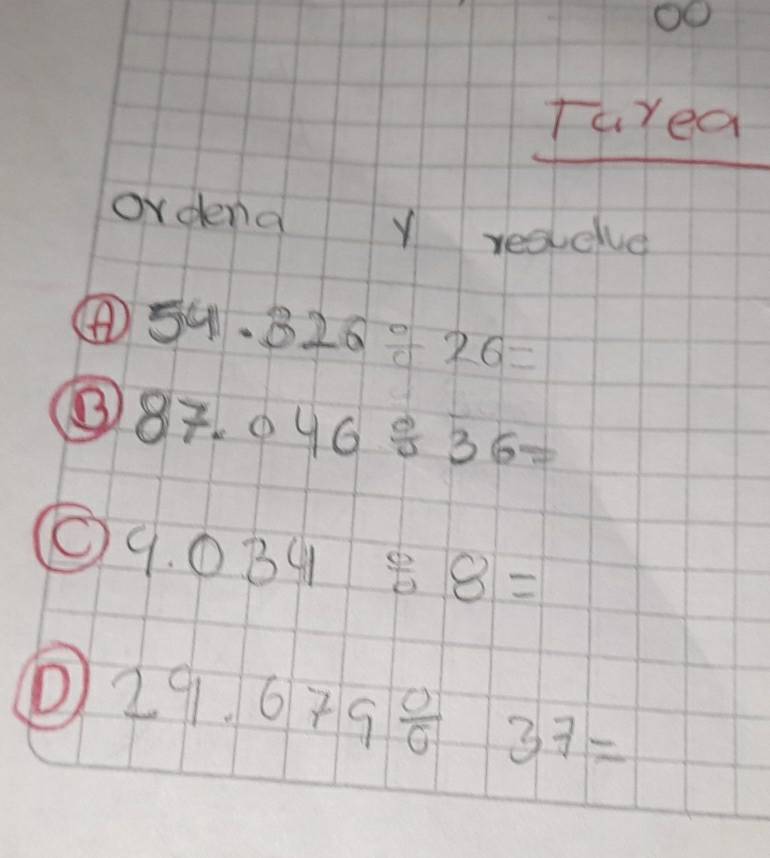 00
Tarea
ordena y resuelve
A 54.826 ÷ 26=
B 87.046 ÷ 36=
C 9.034 ÷ 8=
D 29.679 ÷ 37=